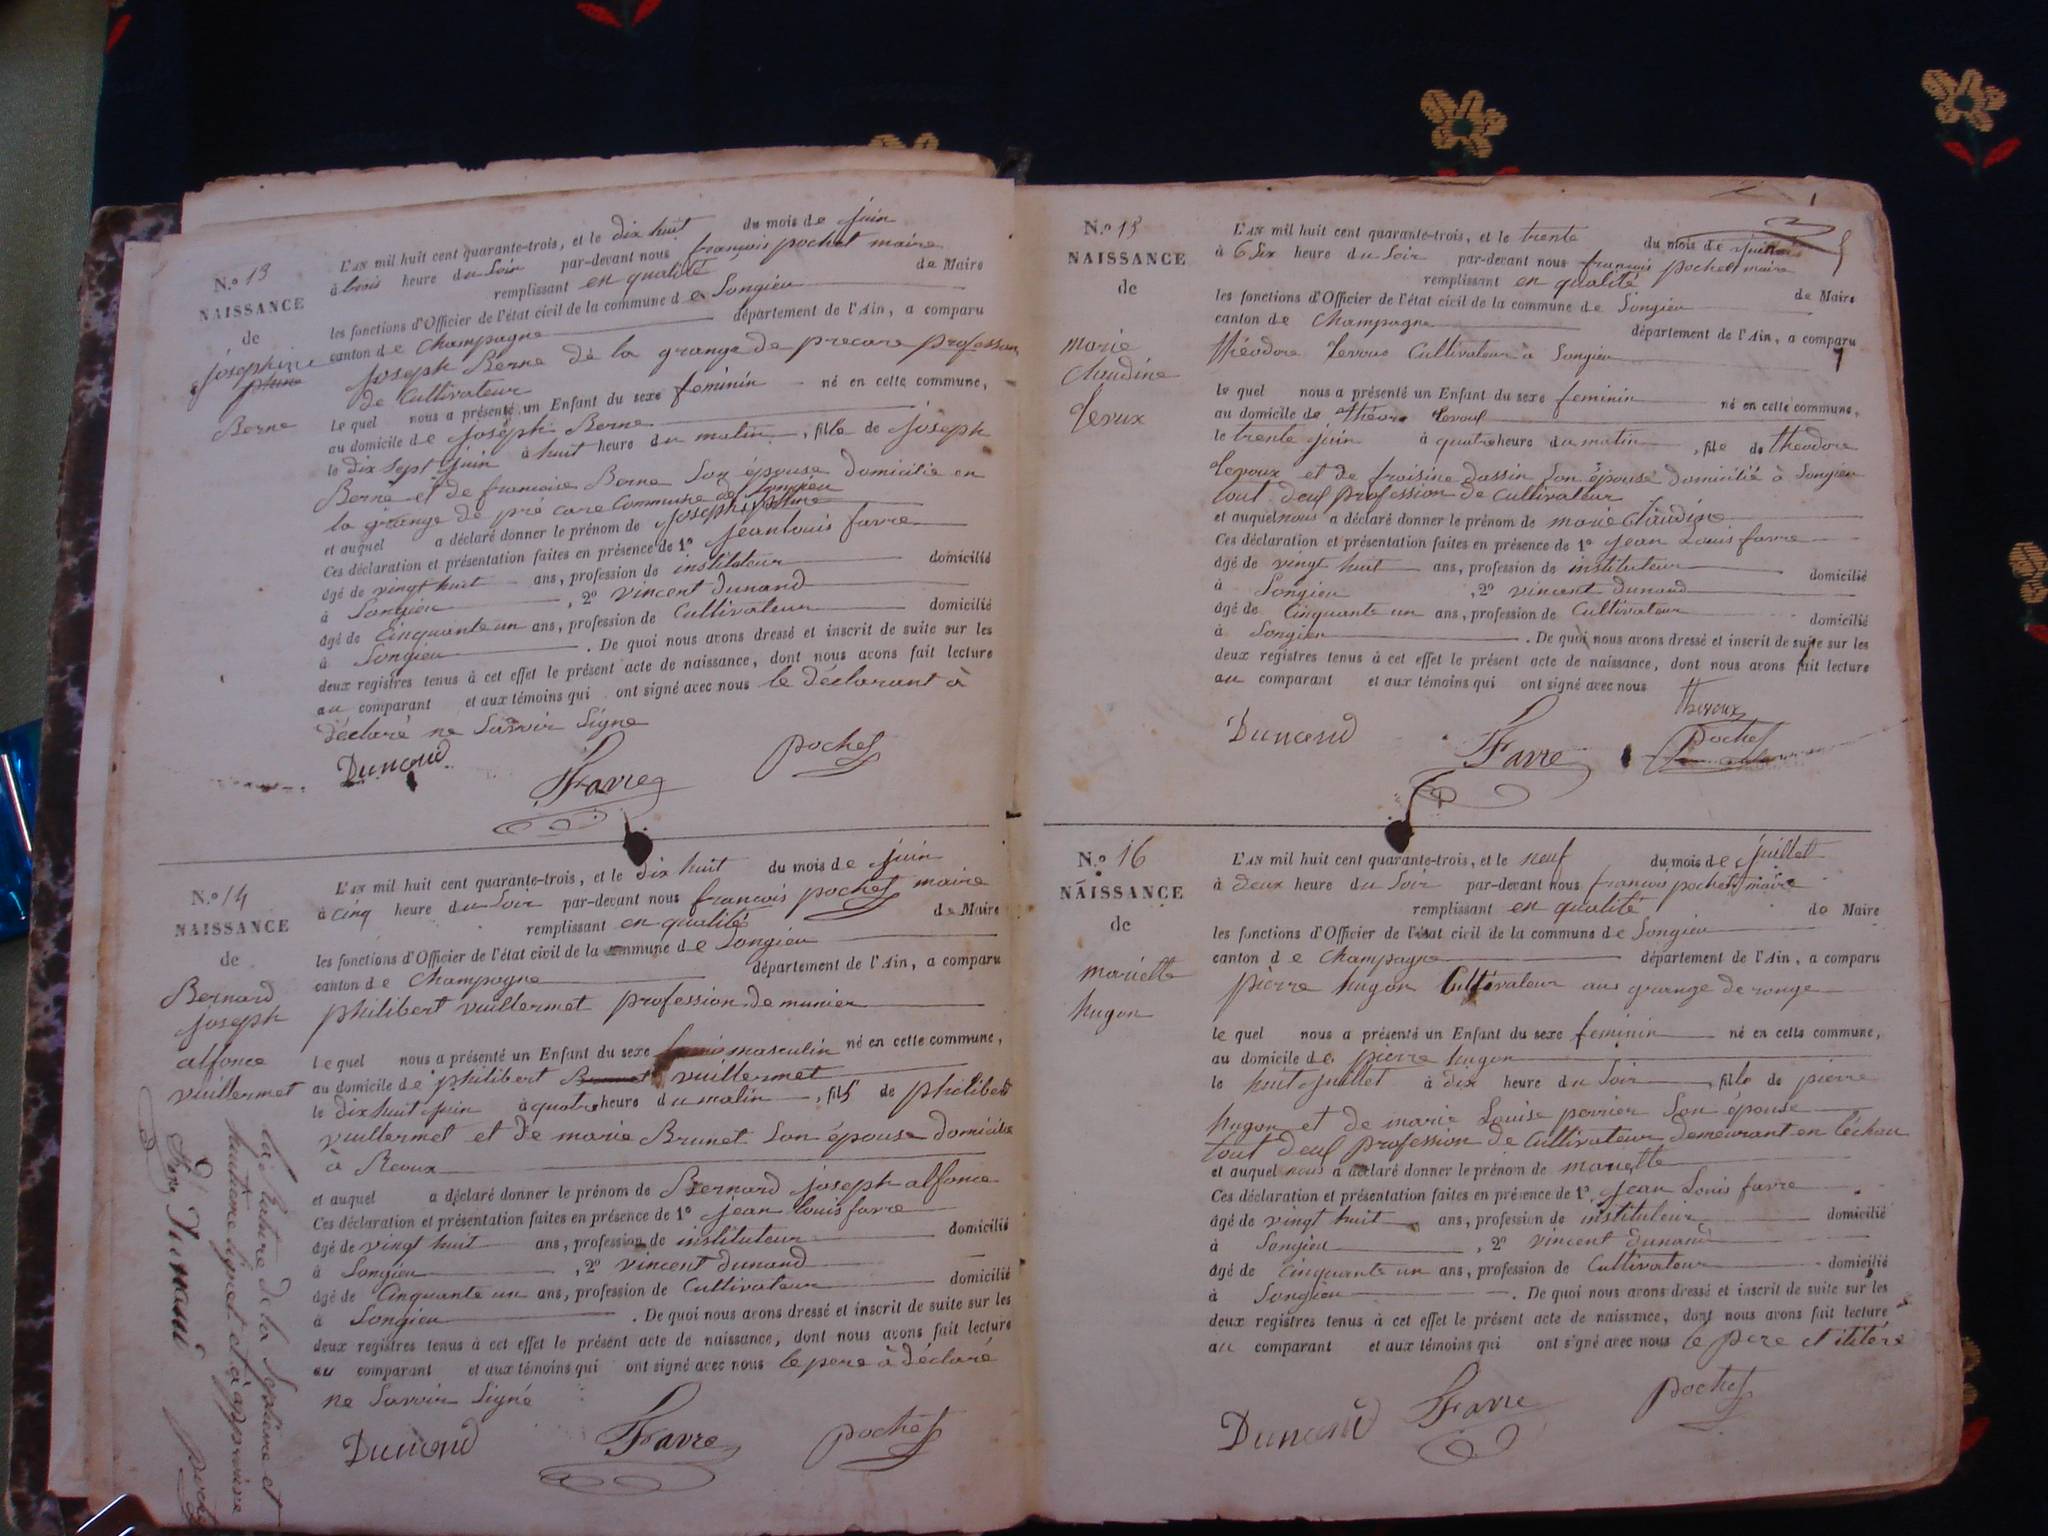 N.º 13
NAISSANCE
de
joséphine
Berne
L'AN mil huit cent quarante-trois, et le dix huit du mois de juin
à trois heure du Soir par-devant nous françois pochet maire
remplissant en qualité de Maire
les fonctions d'Officier de l'état civil de la commune de Songieu
canton de Champagne département de l'Ain, a comparu
joseph Berne de la grange de precare profession
de Cultivateur
le quel nous a présenté un Enfant du sexe feminin né en cette commune,
au domicile de joseph Berne
le dix Sept juin à huit heure du matin, fille de joseph
Berne et de francoise Berne Son épouse domicilie en
la grange de pré care Commune de Songieu
et auquel a déclaré donner le prénom de
Ces déclaration et présentation faites en présence de 1º jean louis favre
âgé de vingt huit ans, profession de instituteur domicilié
à Songieu, 2º vincent dunand
âgé de Cinquante un ans, profession de Cultivateur domicilié
à Songieu. De quoi nous avons dressé et inscrit de suite sur les
deux registres tenus à cet effet le présent acte de naissance, dont nous avons fait lecture
au comparant et aux témoins qui ont signé avec nous le déclarant à
déclaré ne Savoir Signé
Dunand Favre pochet
N.º 14
NAISSANCE
de
Bernard
joseph
alfonce
vuillermet
L'AN mil huit cent quarante-trois, et le dix huit du mois de juin
à cinq heure du Soir par-devant nous françois pochet maire
remplissant en qualité de Maire
les fonctions d'Officier de l'état civil de la commune de Songieu
canton de Champagne département de l'Ain, a comparu
philibert vuillermet profession de munier
le quel nous a présenté un Enfant du sexe masculin né en cette commune,
au domicile de philibert vuillermet
le dix huit juin à quatre heure du matin, fils de philibert
vuillermet et de marie Brunet Son épouse domicilie
à
et auquel a déclaré donner le prénom de Bernard joseph alfonce
Ces déclaration et présentation faites en présence de 1º jean louis favre
âgé de vingt huit ans, profession de instituteur domicilié
à Songieu, 2º vincent dunand
âgé de Cinquante un ans, profession de Cultivateur domicilié
à Songieu. De quoi nous avons dressé et inscrit de suite sur les
deux registres tenus à cet effet le présent acte de naissance, dont nous avons fait lecture
au comparant et aux témoins qui ont signé avec nous le pere à déclaré
ne Savoir Signé
Dunand Favre pochet
la Rature de la Septieme et
huitieme ligne et à approuvé
Dunand pochet
N.º 15
NAISSANCE
de
marie
Claudine
Levux
L'AN mil huit cent quarante-trois, et le trente du mois de juin
à 6 Six heure du Soir par-devant nous françois pochet maire
remplissant en qualité de Maire
les fonctions d'Officier de l'état civil de la commune de Songieu
canton de Champagne département de l'Ain, a comparu
théodore Cultivateur à Songieu
le quel nous a présenté un Enfant du sexe feminin né en cette commune,
au domicile de
le trente juin à quatre heure du matin, fille de théodore
et de Son épouse domicilié à Songieu
tout deux profession de Cultivateur
et auquel nous a déclaré donner le prénom de marie Claudine
Ces déclaration et présentation faites en présence de 1º jean Louis favre
âgé de vingt huit ans, profession de instituteur domicilié
à Songieu, 2º vincent dunand
âgé de Cinquante un ans, profession de Cultivateur domicilié
à Songieu. De quoi nous avons dressé et inscrit de suite sur les
deux registres tenus à cet effet le présent acte de naissance, dont nous avons fait lecture
au comparant et aux témoins qui ont signé avec nous
Dunand Favre Pochet
N.º 16
NAISSANCE
de
mariette
hugon
L'AN mil huit cent quarante-trois, et le neuf du mois de juillet
à deux heure du Soir par-devant nous françois pochet maire
remplissant en qualité de Maire
les fonctions d'Officier de l'état civil de la commune de Songieu
canton de Champagne département de l'Ain, a comparu
pierre hugon Cultivateur aus grange de ronge
le quel nous a présenté un Enfant du sexe feminin né en cette commune,
au domicile de pierre hugon
le huit juillet à dix heure du Soir, fille de pierre
hugon et de marie Louise perrier Son épouse
tout deux profession de Cultivateur demeurant en
et auquel nous a déclaré donner le prénom de mariette
Ces déclaration et présentation faites en présence de 1º jean Louis favre
âgé de vingt huit ans, profession de instituteur domicilié
à Songieu, 2º vincent dunand
âgé de Cinquante un ans, profession de Cultivateur domicilié
à Songieu. De quoi nous avons dressé et inscrit de suite sur les
deux registres tenus à cet effet le présent acte de naissance, dont nous avons fait lecture
au comparant et aux témoins qui ont signé avec nous le pere et ilitéré
Dunand Favre pochet